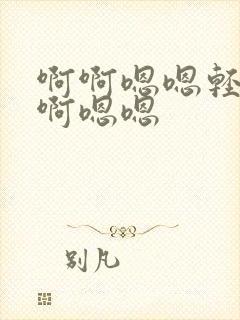 啊啊嗯嗯軽
啊嗯嗯
别凡